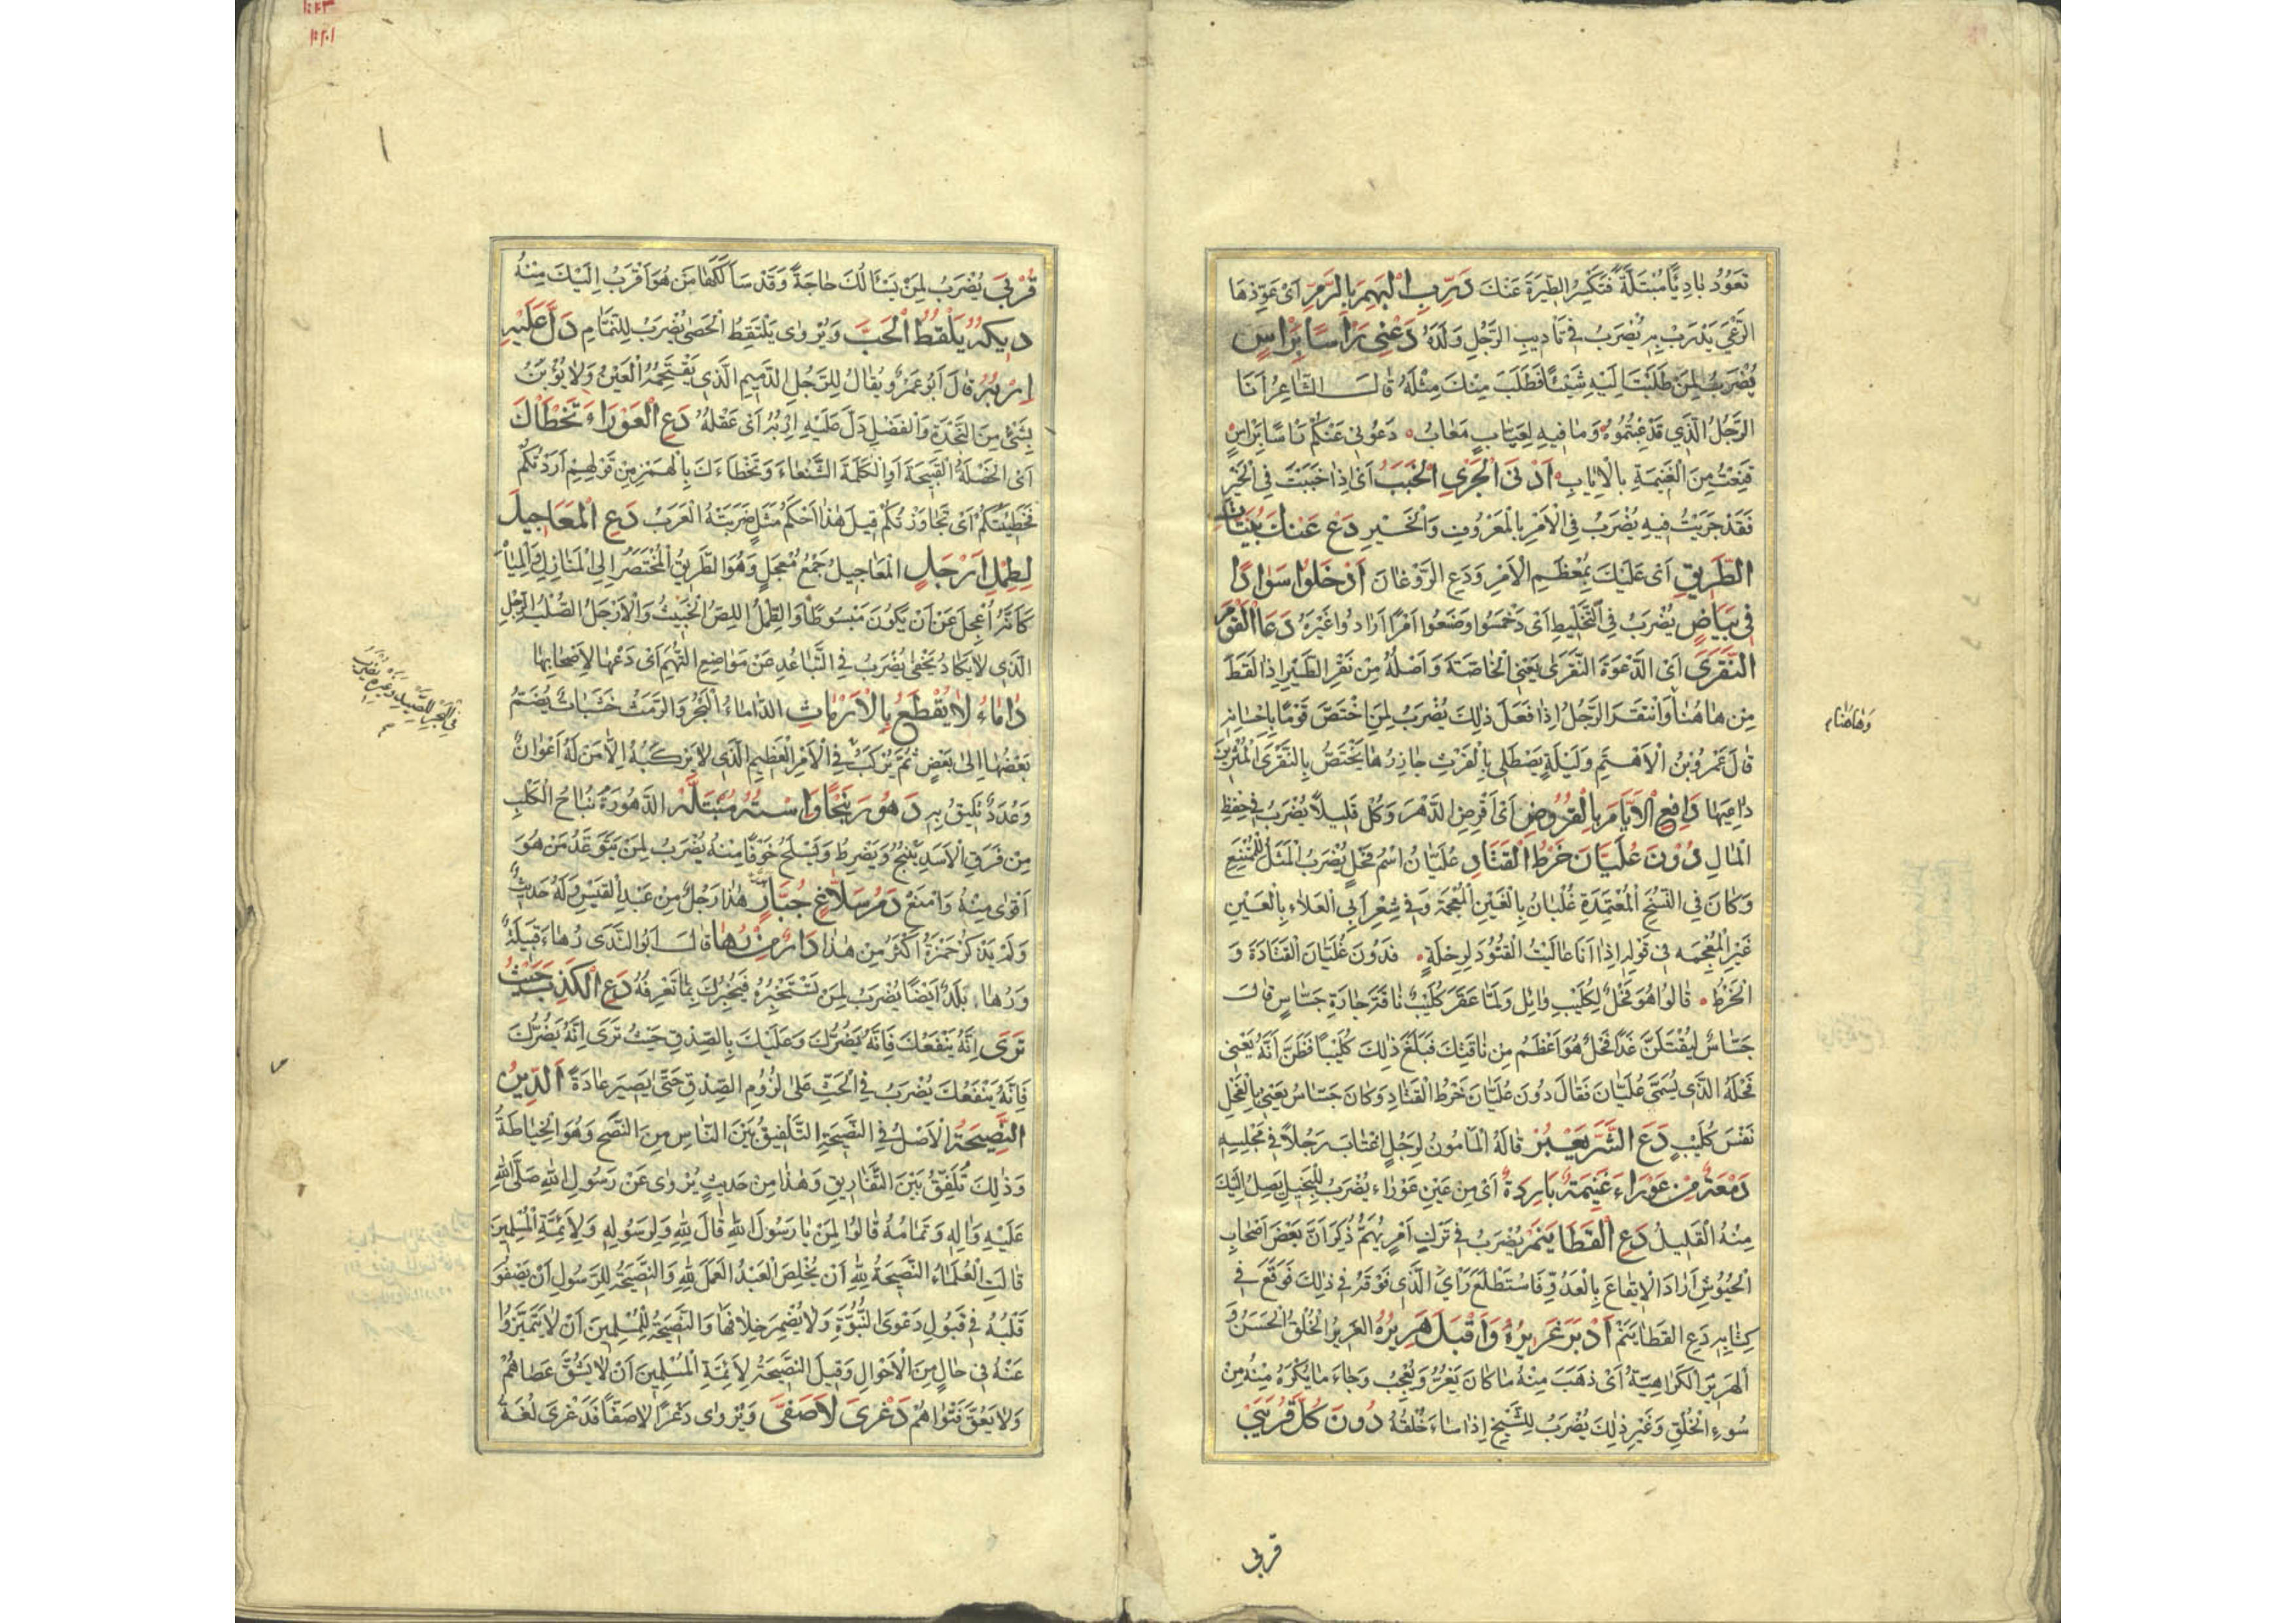 تَعَوَّدَ بَادِيًا مُبْتَلَةً فَتَكْسِرُ الطِّيَرَةَ عَنْكَ دَرِّبِ الْبَهْمَ بِالرَّمِّ اَىْ عَوِّدْهَا
الرَّعْيَ يَدْرَبْ بِهِ يُضْرَبُ فِى تَأدِيبِ الرَّجُلِ وَلَدَهُ دَعْنِى رَاْسًا بِرَاْسٍ
يُضْرَبُ لِمَنْ طَلَبْتَ اِلَيْهِ شَيْئًا فَطَلَبَ مِنْكَ مِثْلَهُ قَالَ الشَّاعِرُ اَنَا
الرَّجُلُ الَّذِي قَدْ عِبْتُمُوهُ وَمَا فِيهِ لِعَيَّابٍ مَعَابُ دَعُونِى عَنْكُمْ رَاسًا بِرَاسٍ
قَنِعْتُ مِنَ الْغَنِيمَةِ بِالْاِيَابِ اَدْنَى الْجَرْىِ الْخَبَبُ اَىْ اِذَا خَبَبْتَ فِى الْخَيْرِ
فَقَدْ جَرَيْتَ فِيهِ يُضْرَبُ فِى الْاَمْرِ بِالْمَعْرُوفِ وَالْخَيْرِ دَعْ عَنْكَ بُنَيَّاتِ
الطَّرِيقِ اَىْ عَلَيْكَ بِمُعْظَمِ الْاَمْرِ وَدَعِ الرَّوَغَانَ اَدْخَلُوا سَوَادًا
فِى بَيَاضٍ يُضْرَبُ فِى التَّخْلِيطِ اَىْ دَخْمَسُوا وَضَعُوا اَمْرًا اَرَادُوا غَيْرَهُ دَعَا الْقَوْمَ
النَّقَرَى اَىِ الدَّعْوَةَ النَّقَرَى يَعْنِى الْخَاصَّةَ وَاَصْلُهُ مِنْ نَقْرِ الطَّيْرِ اِذَا لَقَطَ
مِنْ هَاهُنَا وَانْتَقَرَ الرَّجُلُ اِذَا فَعَلَ ذٰلِكَ يُضْرَبُ لِمَنِ اخْتَصَّ قَوْمًا بِاِحْسَانِهِ
وَهَاهُنَا م
قَالَ عَمْرُو بْنُ الْاَهْتَمِ وَلَيْلَةٍ يَصْطَلِى بِالْفَرْثِ جَازِرُهَا يَخْتَصُّ بِالنَّقَرَى الْمُثْرِينَ
دَاعِيهَا دَافِعِ الْاَيَّامَ بِالْقُرُوضِ اَىْ اَقْرِضِ الدَّهْرَ وَكُلْ قَلِيلًا يُضْرَبُ فِى حِفْظِ
الْمَالِ دُونَ عُلَيَّانَ خَرْطُ الْقَتَادِ عُلَيَّانُ اسْمُ فَحْلٍ يُضْرَبُ الْمَثَلُ لِلْمُمْتَنِعِ
وَكَانَ فِى النُّسَخِ الْمُعْتَمَدَةِ غُلْيَانُ بِالْغَيْنِ الْمُعْجَمَةِ وَفِى شِعْرِ اَبِى الْعَلَاءِ بِالْعَيْنِ
غَيْرِ الْمُعْجَمَةِ فِى قَوْلِهِ اِذَا اَنَا عَالَيْتُ الْقُتُودَ لِرِحْلَةٍ فَدُونَ عُلَيَّانَ الْقَتَادَةُ وَ
الْخَرْطُ قَالُوا هُوَ فَحْلٌ لِكُلَيْبِ وَائِلٍ وَلَمَّا عَقَرَ كُلَيْبٌ نَاقَةَ جَارَةِ جَسَّاسٍ قَالَ
جَسَّاسٌ لَيُقْتَلَنَّ غَدًا فَحْلٌ هُوَ اَعْظَمُ مِنْ نَاقَتِكَ فَبَلَغَ ذٰلِكَ كُلَيْبًا فَظَنَّ اَنَّهُ يَعْنِى
فَحْلَهُ الَّذِى يُسَمَّى عُلَيَّانَ فَقَالَ دُونَ عُلَيَّانَ خَرْطُ الْقَتَادِ وَكَانَ جَسَّاسٌ يَعْنِى بِالْفَحْلِ
نَفْسَ كُلَيْبٍ دَعِ الشَّرَّ يَعْبُرْ قَالَهُ الْمَأمُونُ لِرَجُلٍ اغْتَابَ رَجُلًا فِى مَجْلِسِهِ
دَمْعَةٌ مِنْ عَوْرَاءَ غَنِيمَةٌ بَارِدَةٌ اَىْ مِنْ عَيْنٍ عَوْرَاءَ يُضْرَبُ لِلْبَخِيلِ يَصِلُ اِلَيْكَ
مِنْهُ الْقَلِيلُ دَعِ الْقَطَا يَنَمْ يُضْرَبُ فِى تَرْكِ اَمْرٍ يُهَمُّ ذُكِرَ اَنَّ بَعْضَ اَصْحَابِ
الْجُيُوشِ اَرَادَ الْاِيقَاعَ بِالْعَدُوِّ فَاسْتَطْلَعَ رَاْىَ الَّذِى فَوْقَهُ فِى ذٰلِكَ فَوَقَّعَ فِى
كِتَابِهِ دَعِ الْقَطَا يَنَمْ اَدْبَرَ غَرِيرُهُ وَاَقْبَلَ هَرِيرُهُ الْغَرِيرُ الْخُلُقُ الْحَسَنُ وَ
الْهَرِيرُ الْكَرَاهِيَةُ اَىْ ذَهَبَ مِنْهُ مَا كَانَ يَغُرُّ وَيُعْجِبُ وَجَاءَ مَا يُكْرَهُ مِنْهُ مِنْ
سُوءِ الْخُلُقِ وَغَيْرِ ذٰلِكَ يُضْرَبُ لِلشَّيْخِ اِذَا سَاءَ خُلُقُهُ دُونَ كُلِّ قُرَيْبَى
قربى
قُرْبَى يُضْرَبُ لِمَنْ يَسْئَالُكَ حَاجَةً وَقَدْ سَاَلَكَهَا مَنْ هُوَ اَقْرَبُ اِلَيْكَ مِنْهُ
دِيكُهُ يَلْقُطُ الْحَبَّ وَيُرْوٰى يَلْتَقِطُ الْحَصٰى يُضْرَبُ لِلنَّمَّامِ دَلَّ عَلَيْهِ
اِرْبُهُ قَالَ اَبُو عَمْرٍو يُقَالُ لِلرَّجُلِ الدَّمِيمِ الَّذِى يَقْتَحِمُهُ الْعَيْنُ وَلَا يُؤْبَنُ
بِشَىْءٍ مِنَ النَّجْدَةِ وَالْفَضْلِ دَلَّ عَلَيْهِ اِرْبُهُ اَىْ عَقْلُهُ دَعِ الْعَوْرَاءَ تَخْطَاْكَ
اَىِ الْخَصْلَةَ الْقَبِيحَةَ اَوِ الْكَلِمَةَ الشَّنْعَاءَ وَتَخْطَاءَكَ بِالْهَمْزِ مِنْ قَوْلِهِمْ اَرَدْتُكُمْ
فَخَطِئْتُكُمْ اَىْ تَجَاوَزْتُكُمْ قِيلَ هٰذَا اَحْكَمُ مَثَلٍ ضَرَبَتْهُ الْعَرَبُ دَعِ الْمَعَاجِيلَ
لِطِمْلٍ اَرْجَلٍ الْمَعَاجِيلُ جَمْعُ مُعْجَلٍ وَهُوَ الطَّرِيقُ الْمُخْتَصَرُ اِلَى الْمَنَازِلِ وَالْمِيَاهِ
كَاَنَّهُ اُعْجِلَ عَنْ اَنْ يَكُونَ مَبْسُوطًا وَالطِّمْلُ اللِّصُّ الْخَبِيثُ وَالْاَرْجَلُ الصُّلْبُ الرِّجْلِ
الَّذِى لَا يَكَادُ يَحْفٰى يُضْرَبُ فِى التَّبَاعُدِ عَنْ مَوَاضِعِ التُّهَمِ اَىْ دَعْهَا لِاَصْحَابِهَا
دَامَاءُ لَا يُقْطَعُ بِالْاَرْمَاثِ الدَّامَاءُ الْبَحْرُ وَالرَّمَثُ خَشَبَاتٌ يُضَمُّ
بَعْضُهَا اِلٰى بَعْضٍ ثُمَّ يُرْكَبُ فِى الْاَمْرِ الْعَظِيمِ الَّذِى لَا يَرْكَبُهُ اِلَّا مَنْ لَهُ اَعْوَانٌ
وَعُدَدٌ تَلِيقُ بِهِ دَهْوَرَ نَبْحًا وَاسْتُهُ مُبْتَلَّةٌ الدَّهْوَرَةُ نُبَاحُ الْكَلْبِ
مِنْ فَرَقِ الْاَسَدِ يَنْبَحُ وَيَضْرِطُ وَيَسْلَحُ خَوْفًا مِنْهُ يُضْرَبُ لِمَنْ يَتَوَعَّدُ مَنْ هُوَ
اَقْوٰى مِنْهُ وَاَمْنَعُ دَمُ سَلَّاغٍ جُبَارٌ هٰذَا رَجُلٌ مِنْ عَبْدِ الْقَيْسِ وَلَهُ حَدِيثٌ
وَلَمْ يَذْكُرْ حَمْزَةُ اَكْثَرَ مِنْ هٰذَا دَارٌ مِنْ رُهَا قَالَ اَبُو النَّدَى رُهَاءُ قَبِيلَةٌ
وَرُهَا بَلَدٌ اَيْضًا يُضْرَبُ لِمَنْ تَسْتَخْبِرُهُ فَيُخْبِرُكَ بِمَا تَعْرِفُهُ دَعِ الْكَذِبَ حَيْثُ
تَرَى اَنَّهُ يَنْفَعُكَ فَاِنَّهُ يَضُرُّكَ وَعَلَيْكَ بِالصِّدْقِ حَيْثُ تَرٰى اَنَّهُ يَضُرُّكَ
فَاِنَّهُ يَنْفَعُكَ يُضْرَبُ فِى الْحَثِّ عَلٰى لُزُومِ الصِّدْقِ حَتّٰى يَصِيرَ عَادَةً اَلدِّينُ
النَّصِيحَةُ الْاَصْلُ فِى النَّصِيحَةِ التَّلْفِيقُ بَيْنَ النَّاسِ مِنَ النُّصْحِ وَهُوَ الْخِيَاطَةُ
وَذٰلِكَ تُلَفِّقُ بَيْنَ التَّفَارِيقِ وَهٰذَا مِنْ حَدِيثٍ يُرْوٰى عَنْ رَسُولِ اللهِ صَلَّى اللهُ
عَلَيْهِ وَاٰلِهِ وَتَمَامُهُ قَالُوا لِمَنْ يَا رَسُولَ اللهِ قَالَ لِلّٰهِ وَلِرَسُولِهِ وَلِاَئِمَّةِ الْمُسْلِمِينَ
قَالَتِ الْعُلَمَاءُ النَّصِيحَةُ لِلّٰهِ اَنْ يُخْلِصَ الْعَبْدُ الْعَمَلَ لِلّٰهِ وَالنَّصِيحَةُ لِلرَّسُولِ اَنْ يَصْفُوَ
قَلْبُهُ فِى قَبُولِ دَعْوَى النُّبُوَّةِ وَلَا يُضْمِرَ خِلَافَهَا وَالنَّصِيحَةُ لِلْمُسْلِمِينَ اَنْ لَا يَتَمَيَّزُوا
عَنْهُ فِى حَالٍ مِنَ الْاَحْوَالِ وَقِيلَ النَّصِيحَةُ لِاَئِمَّةِ الْمُسْلِمِينَ اَنْ لَا يَشُقَّ عَصَاهُمْ
وَلَا يَعُقَّ فَتْوَاهُمْ دَغْرَى لَا صَفَّى وَيُرْوٰى دَغْرًا لَا صَفًّا فَدَغْرَى لُغَةُ